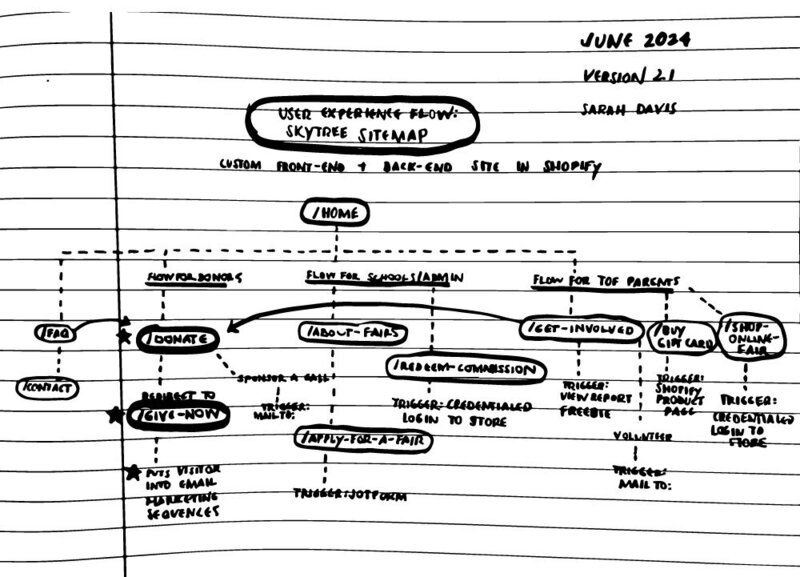 JUNE 2024
VERSION 2.1
SARAH DAVIS
USER EXPERIENCE FLOW:
SKYTREE SITEMAP
CUSTOM FRONT-END + BACK-END SITE IN SHOPIFY
/HOME
FLOW FOR DONORS
FLOW FOR SCHOOLS/ADMIN
FLOW FOR TOF PARENTS
/FAQ
/DONATE
/ABOUT-FAIRS
/GET-INVOLVED
/BUY
GIFT CARD
/SHOP-
ONLINE-
FAIR
/CONTACT
SPONSOR A
TRIGGER:
MAIL TO:
/REDEEM-COMMISSION
TRIGGER: CREDENTIALED
LOGIN TO STORE
TRIGGER:
VIEW REPORT
FREEBIE
TRIGGER:
SHOPIFY
PRODUCT
PAGE
TRIGGER:
CREDENTIALED
LOGIN TO
STORE
REDIRECT TO
/GIVE-NOW
/APPLY-FOR-A-FAIR
VOLUNTEER
TRIGGER:
MAIL TO:
PUTS VISITOR
INTO EMAIL
MARKETING
SEQUENCES
TRIGGER: JOTFORM